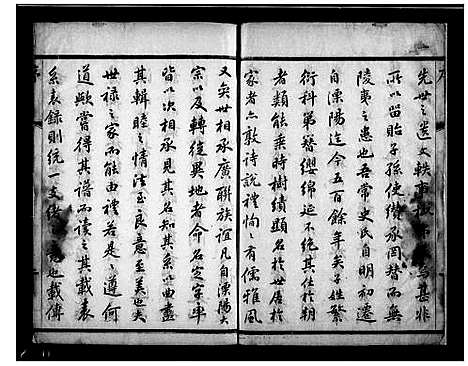 先世之遺文軼事
所以留貽子孫使纘承罔替而無
陵夷之患也吾常史氏自明初遷
自溧陽迄今五百餘年矣子姓繁
衍科第簪纓綿延不絕其仕於朝
者類能乘時樹績顯名於世居於
家者亦敦詩說禮恂有儒雅風
又矣世相承廣聯族誼凡自溧陽大
宗以及轉徙異地者命名定字率
皆以次相承見其名知其系以曲盡
其輯睦之情法至良意至美也夫
世祿之家而能由禮若是之遵何
道歟嘗得其譜而讀之其載表
系表錄則統一支 也載傳